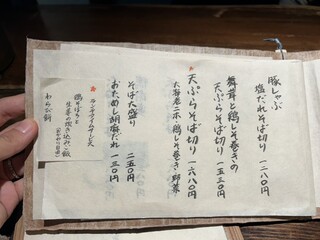 豚しゃぶ
塩だれそば切り 一二八〇円
舞茸と鶏しそ巻きの
天ぷらそば切り 一三五〇円
天ぷらそば切り 一六八〇円
大海老二本、鶏しそ巻き、野菜
そば大盛り 二五〇円
おためし胡麻だれ 一三〇円
ランチタイムサービス
鶏そぼろと
生姜の炊き込みご飯
わらび餅